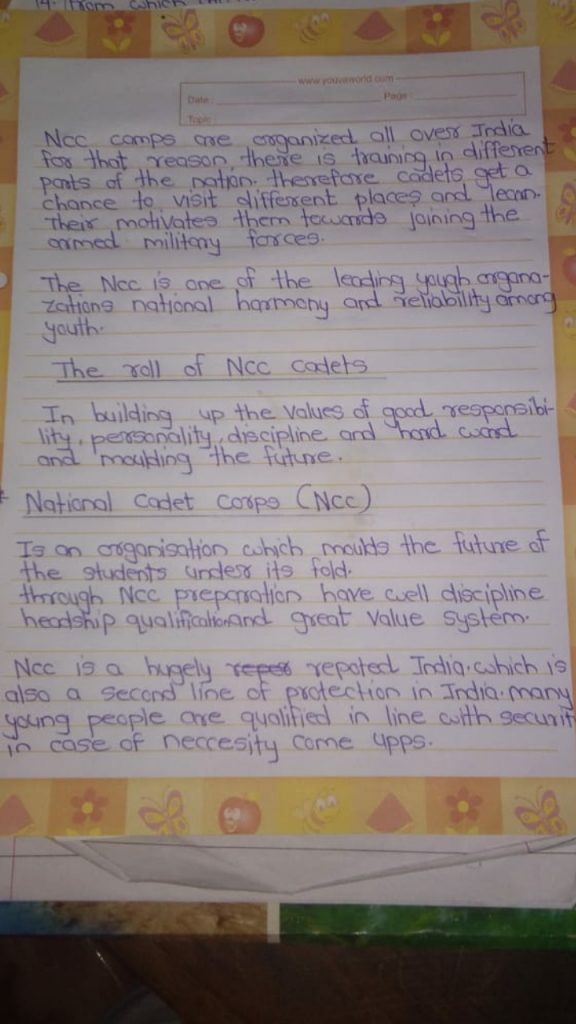 14. From which
www.youvaworld.com
Date : Page :
Topic :
Ncc camps are organized all over India
for that reason, there is training in different
parts of the nation. therefore cadets get a
chance to visit different places and learn.
Their motivates them towards joining the
armed military forces.
The Ncc is one of the leading yough organa-
zations national harmony and reliability among
youth.
The roll of Ncc cadets
In building up the values of good responsibi-
lity, personality, discipline and hard word
and moulding the future.
National Cadet Corps (Ncc)
Is an organisation which moulds the future of
the students under its fold.
through Ncc preparation have well discipline
headship qualification and great value system.
Ncc is a hugely repoted India. which is
also a second line of protection in India. many
young people are qualified in line with securit
in case of neccesity come upps.